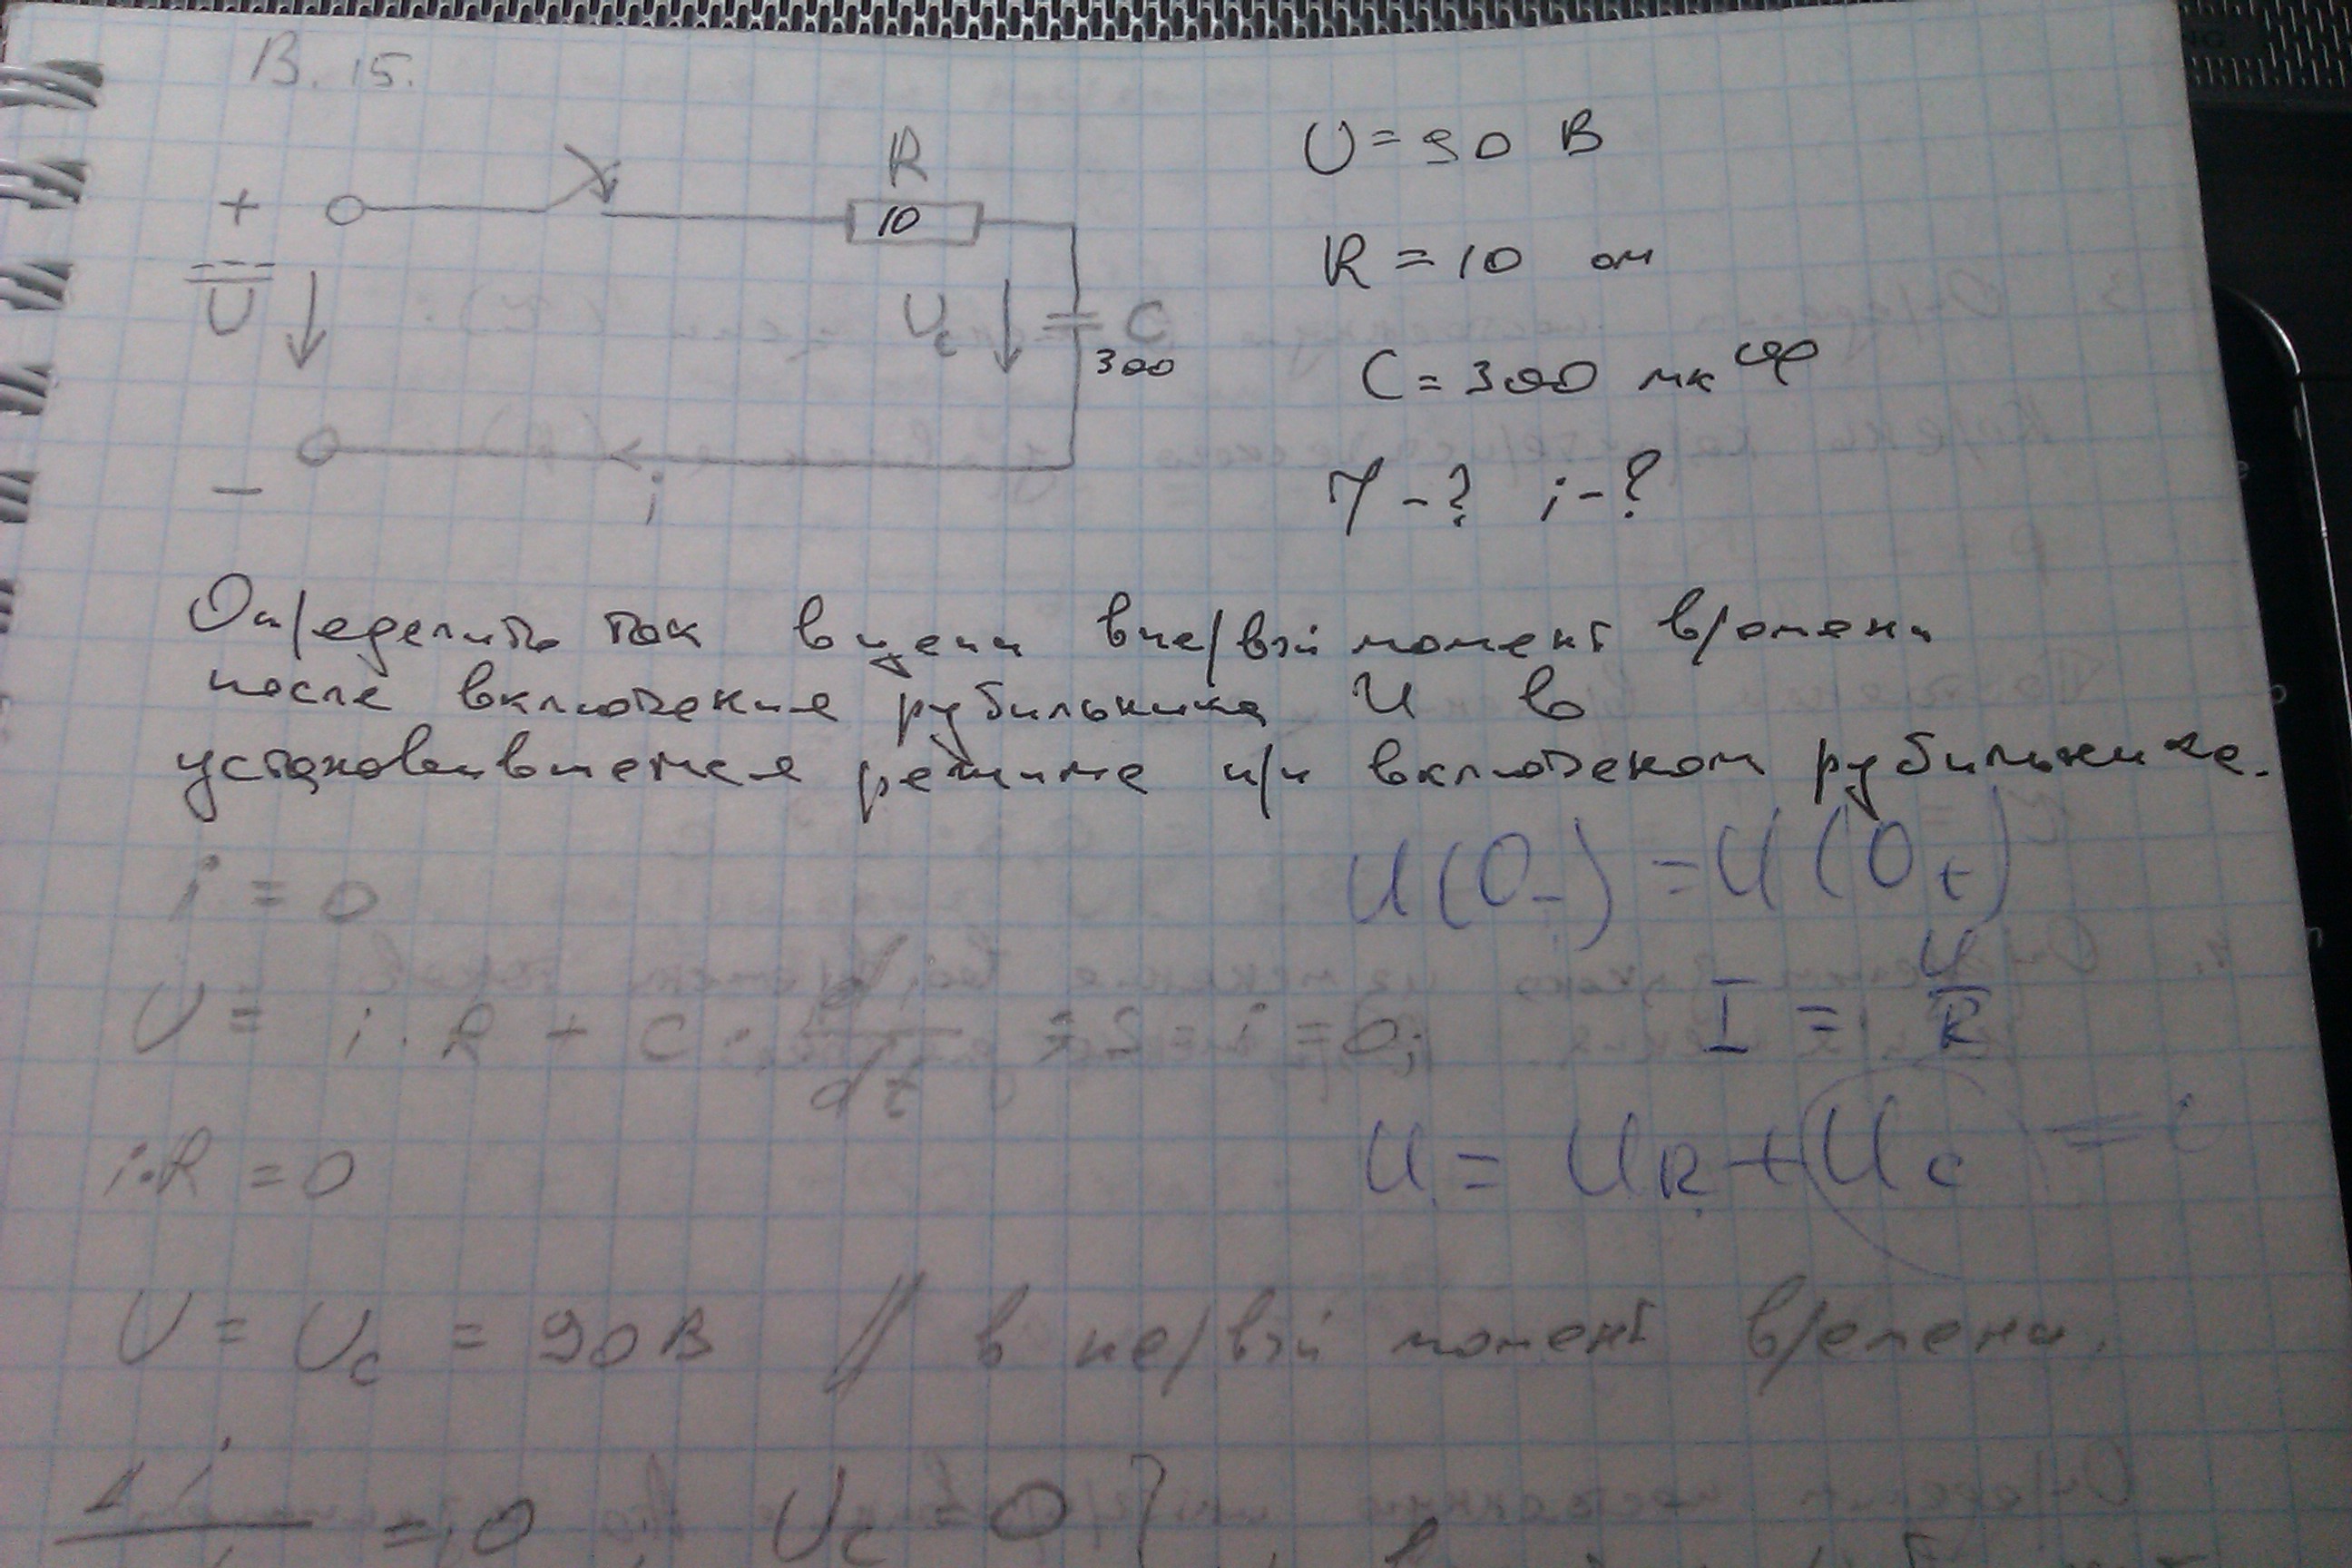 В. 15.
R
10
+
U
Uc
C
300
−
i
U = 90 В
R = 10 ом
C = 300 мкф
i - ?
Определить ток в цепи в первый момент времени
после включения рубильника и в
установившемся режиме при включеном рубильнике.
i = 0
U(0₋) = U(0₊)
I = U/R
U = i · R + C ·
dt
i·R = 0
U = UR + Uc =
U = Uc = 90 В // в первый момент времени.
= 0 Uc = 0